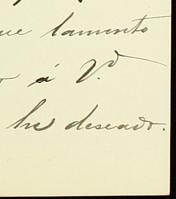 que lamento
á V.d
he deseado.